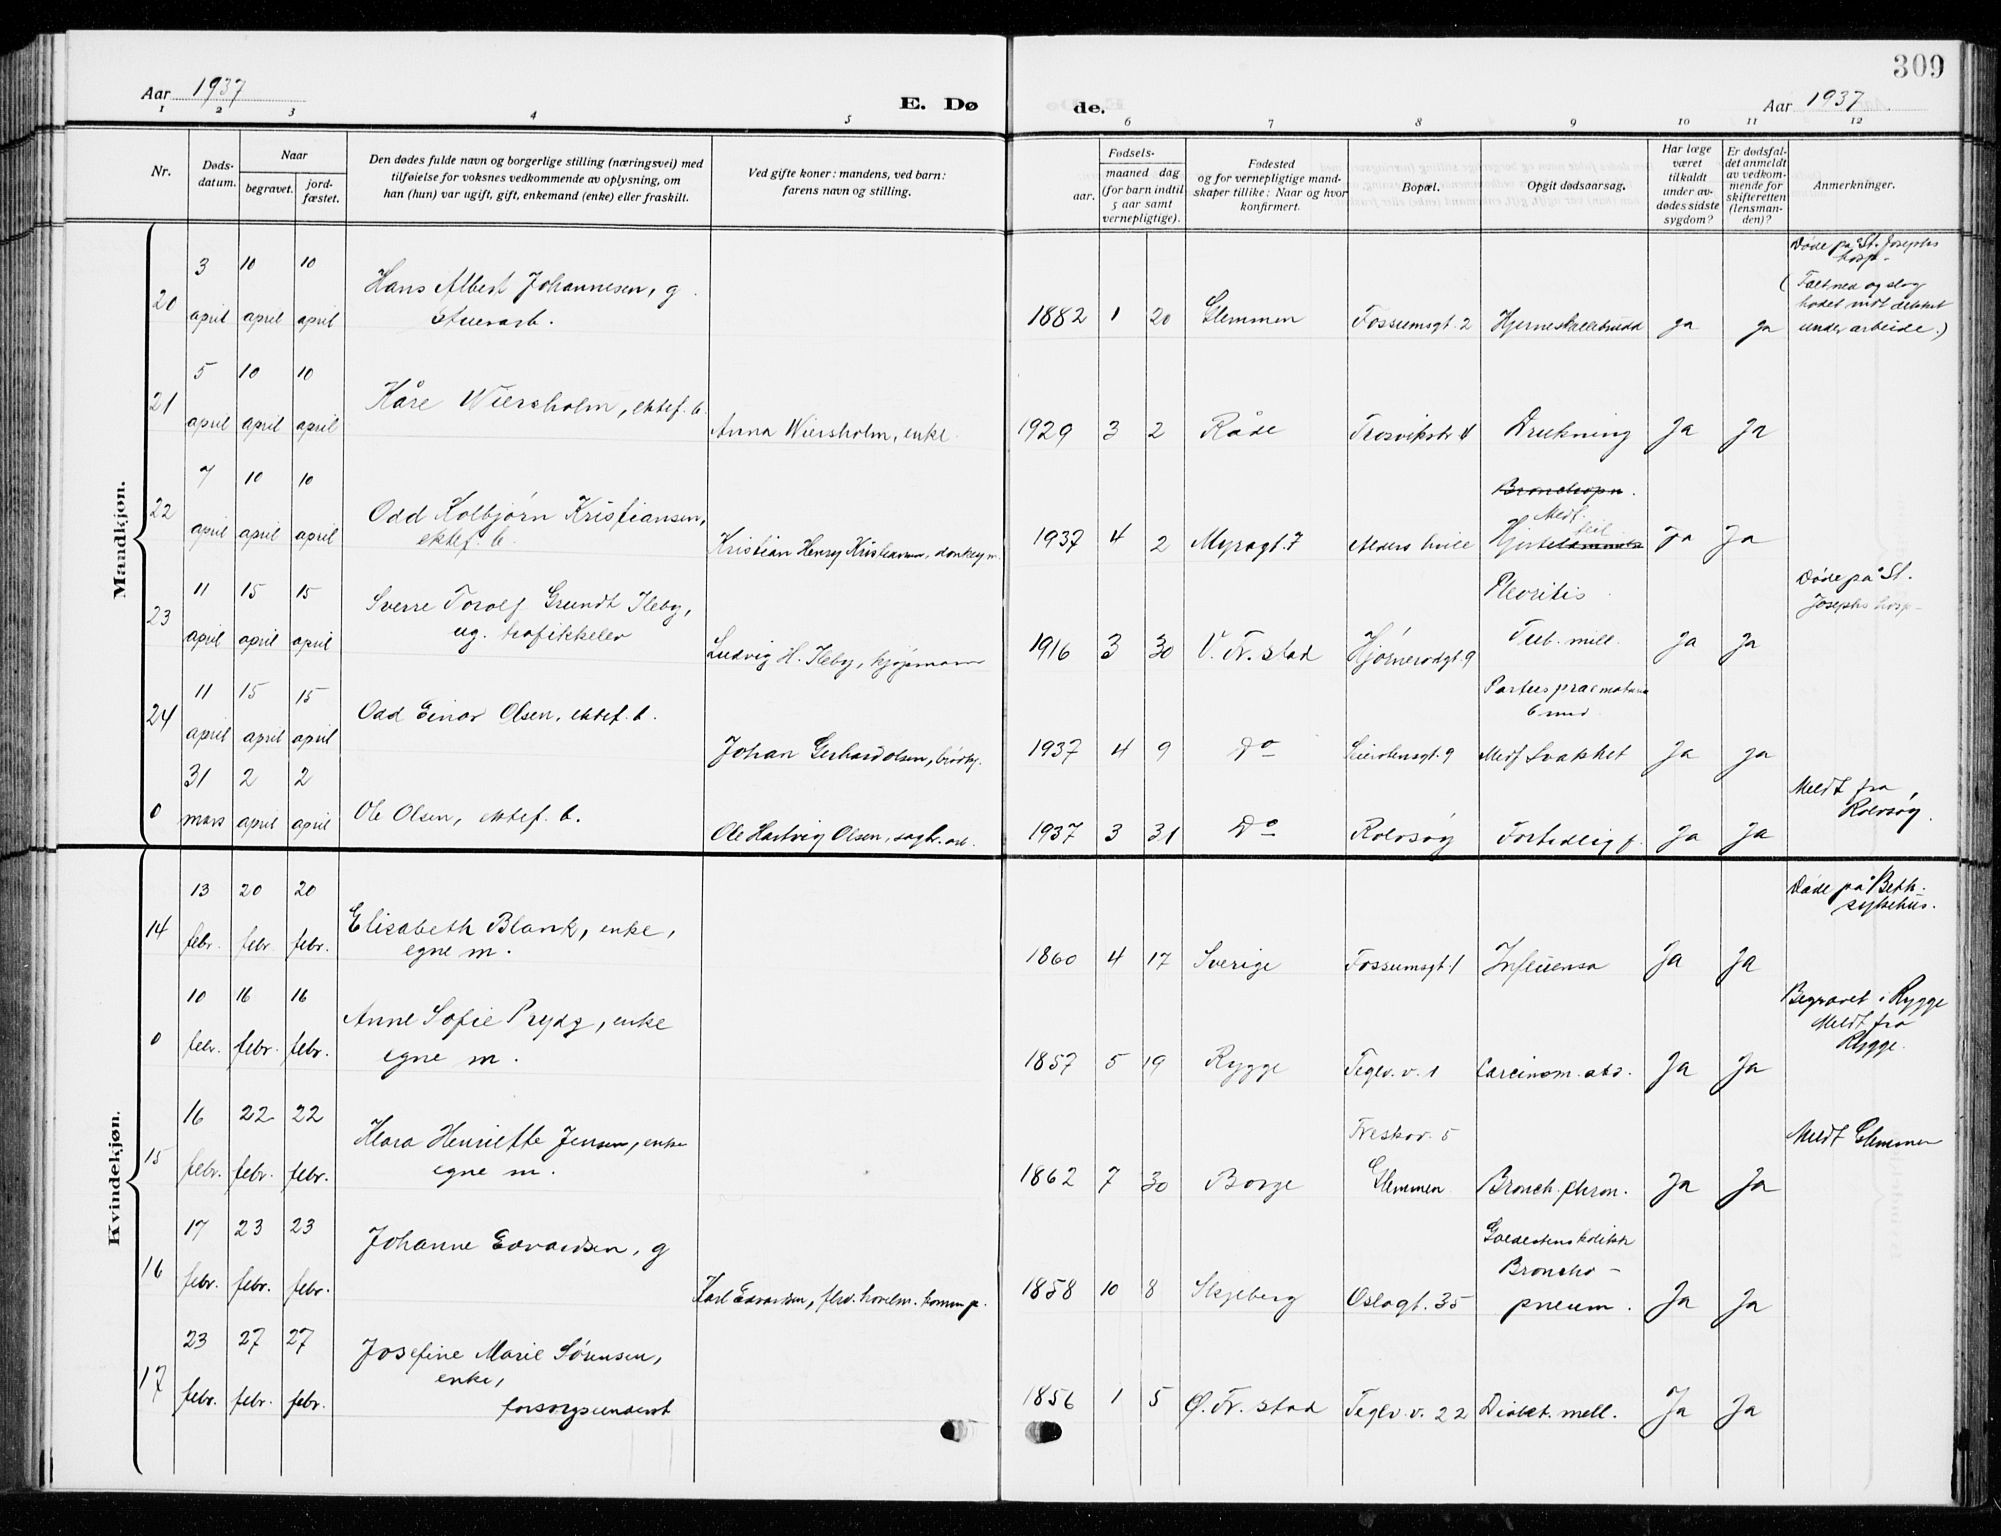 309
Aar 1937
E. Dø
de.
Aar 1937
1 2 3 4 5 6 7 8 9 10 11 12
Nr.
Døds-
datum.
Naar
begravet.
jord-
fæstet.
Den dødes fulde navn og borgerlige stilling (næringsvei) med
tilføielse for voksnes vedkommende av oplysning, om
han (hun) var ugift, gift, enkemand (enke) eller fraskilt.
Ved gifte koner: mandens, ved barn:
farens navn og stilling.
Fødsels-
aar. maaned dag
(for barn indtil
5 aar samt
vernepligtige).
Fødested
og for vernepligtige mand-
skaper tillike: Naar og hvor
konfirmert.
Bopæl.
Opgit dødsaarsag.
Har læge
været
tilkaldt
under av-
dødes sidste
sygdom?
Er dødsfal-
det anmeldt
av vedkom-
mende for
skifteretten
(lensman-
den)?
Anmerkninger.
Mandkjøn.
20
3 10 10
april april april
Hans Albert Johannesen, g
stuerarb.
1882 1 20 Glemmen Fossumsgt. 2 Hjerneskallebrudd ja ja
Døde på St. Josephs
hosp.
(Falt ned og slog
hodet mot dekket
under arbeide.)
21
5 10 10
april april april
Kåre Wiersholm, ektef. b.
Anna Wiersholm, enke.
1929 3 2 Råde Trosvikstr 4 Drukning Ja Ja
22
7 10 10
april april april
Odd Kolbjørn Kristiansen,
ektef. b.
Kristian Henry Kristiansen, donkeym.
1937 4 2 Myragt. 7 Alders hvile
Bronchopn.
Medf.
feil
Hjerte
Ja Ja
23
11 15 15
april april april
Sverre Torolf Grundt Ileby,
ug. trafikkelev
Ludvig H. Ileby, kjøpmann
1916 3 30 V. Fr. stad Hjørnerødgt. 9
Pleuritis
Tub. mill.
Ja Ja
Døde på St.
Josephs hosp.
24
11 15 15
april april april
Odd Einar Olsen, ektef. b.
Johan Gerhard Olsen,
1937 4 9 Do
Partus praematurus
6 mnd.
Medf Svakhet Ja Ja
0
31 2 2
mars april april
Ole Olsen, ektef. b.
Ole Hartvig Olsen, sagbr. arb.
1937 3 31 Do Rolvsøy Fortidlig f. Ja Ja
Meldt fra
Rolvsøy.
Kvindekjøn.
14
13 20 20
febr. febr. febr.
Elisabeth Blank, enke,
egne m.
1860 4 17 Sverige Fossumsgt. 1 Influensa Ja Ja
Døde på Beth.
sykehus.
0
10 16 16
febr. febr. febr.
Anne Sofie Prydz, enke
egne m.
1857 5 19 Rygge Teglv. v. 1 Carcinom. abd. Ja Ja
Begravet i Rygge
Meldt fra
Rygge.
15
16 22 22
febr. febr. febr.
Klara Henriette Jensen, enke
egne m.
1862 7 30 Borge
Treskov. 5
Glemmen
Bronch. chron. Ja Ja
Meldt Glemmen
16
17 23 23
febr. febr. febr.
Johanne Edvardsen, g
Karl Edvardsen,
1858 10 8 Skjeberg Oslogt. 35
Galdestenskolikk
Broncho-
pneum.
Ja Ja
17
23 27 27
febr. febr. febr.
Josefine Marie Sørensen,
enke,
forsorgsunderst
1856 1 5 Ø. Fr. stad Teglv. v. 22 Diabet. mell. Ja Ja